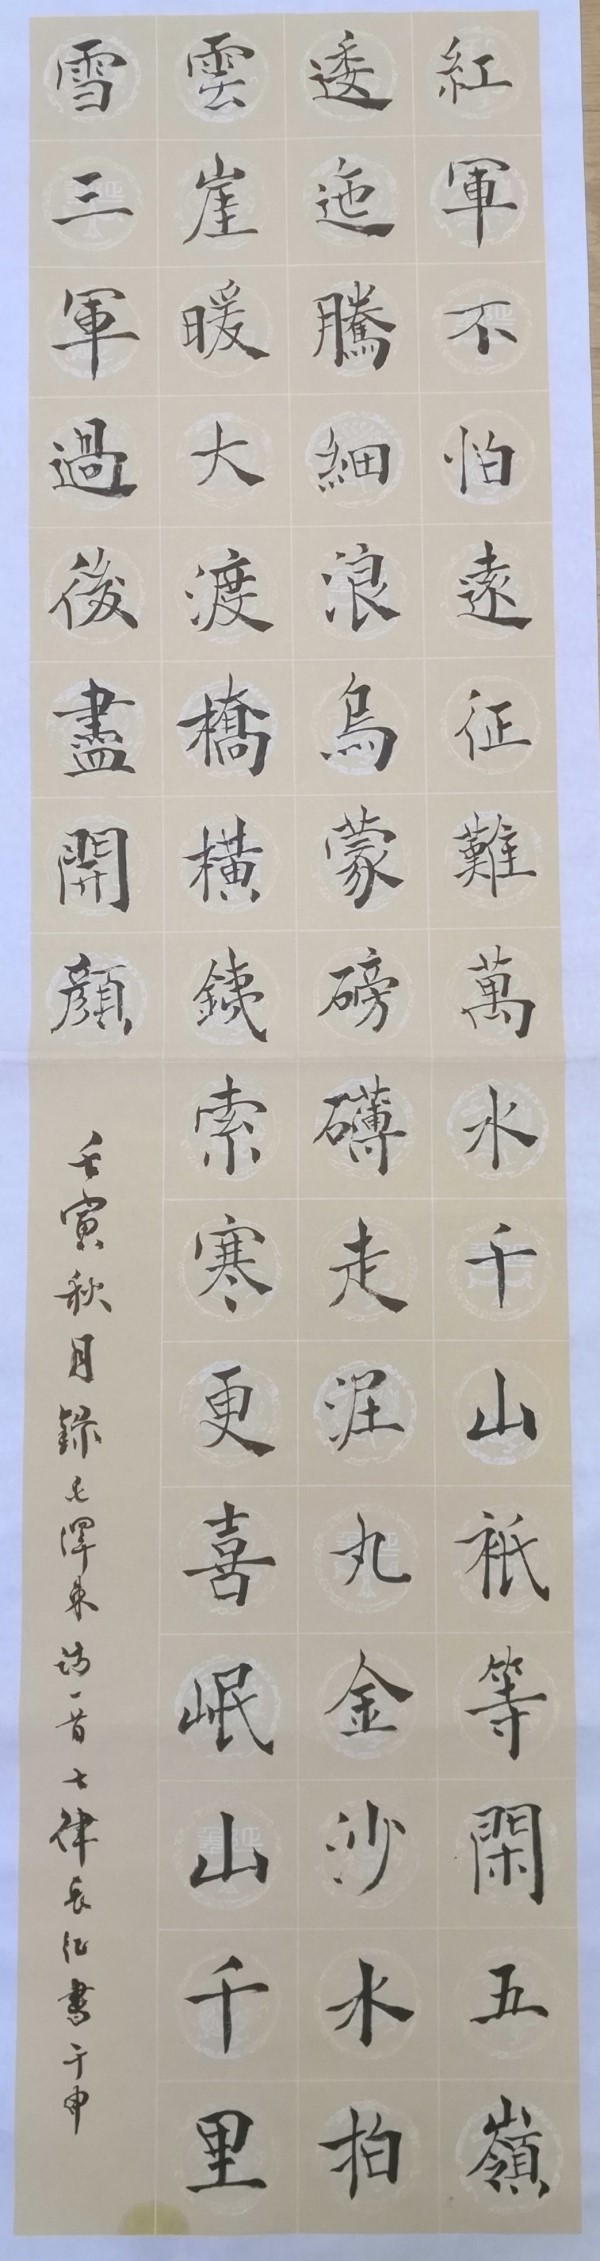 紅軍不怕遠征難萬水千山祇等閑五嶺
逶迤騰細浪烏蒙磅礴走泥丸金沙水拍
雲崖暖大渡橋橫鐵索寒更喜岷山千里
雪三軍過後盡開顏
壬寅秋月錄毛澤東詩一首七律長征書于申